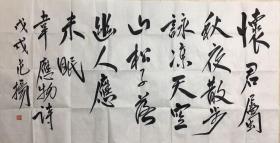 懷君屬
秋夜散步
詠涼天空
山松子落
幽人應
未眠
韋應物詩
戊戌范揚